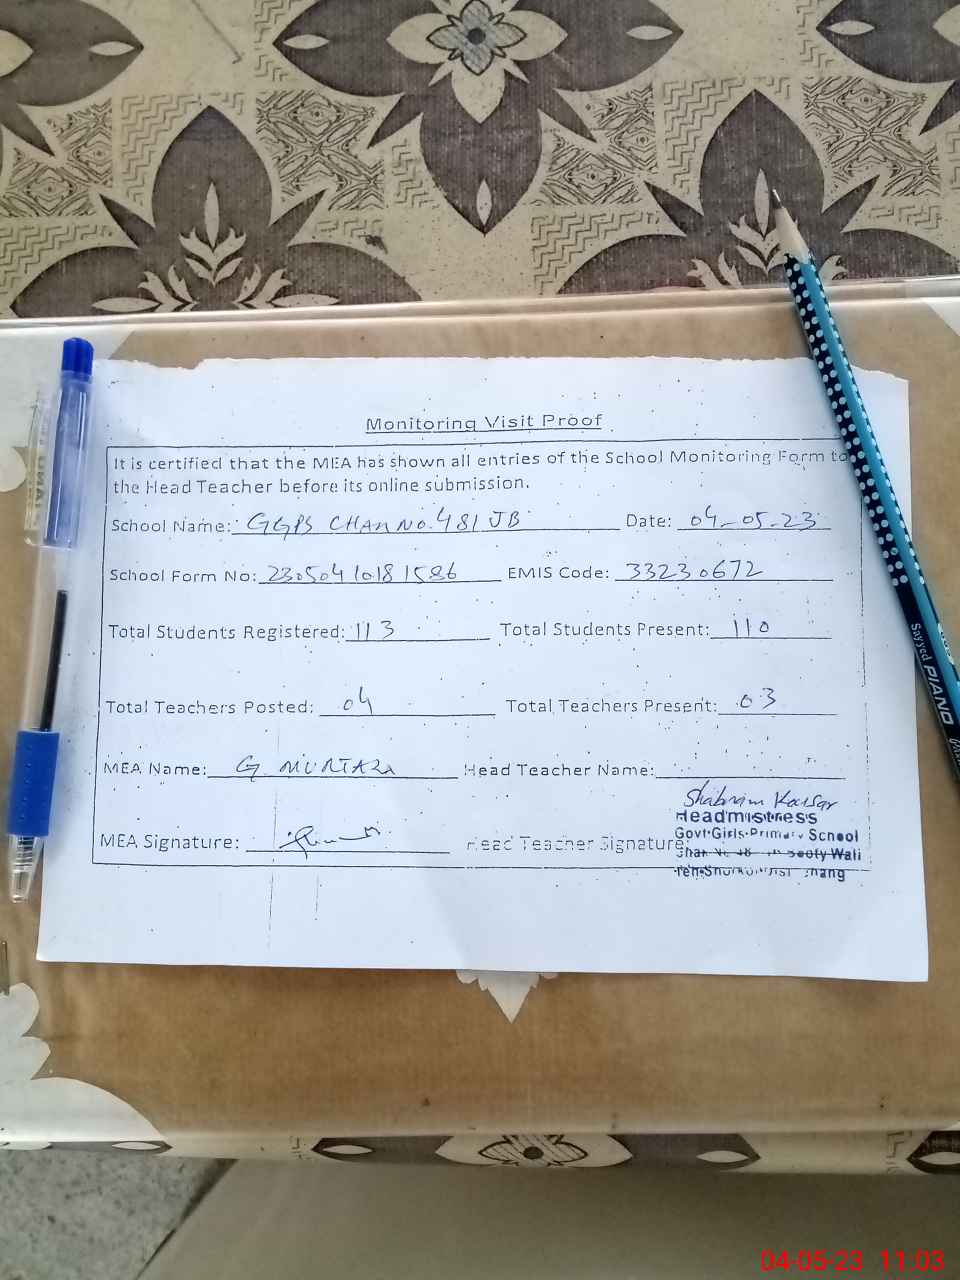 Monitoring Visit Proof
It is certified that the MEA has shown all entries of the School Monitoring Form to
the Head Teacher before its online submission.
School Name: GGPS CHAH NO. 481 JB Date: 04-05-23
School Form No: 23050410181586 EMIS Code: 33230672
Total Students Registered: 113 Total Students Present: 110
Total Teachers Posted: 04 Total Teachers Present: 03
MEA Name: G MURTAZA Head Teacher Name:
Shabnam Kousar
Headmistress
Govt Girls Primary School
MEA Signature: Head Teacher Signature
Wali
Sayyed PIANO
04-05-23 11:03